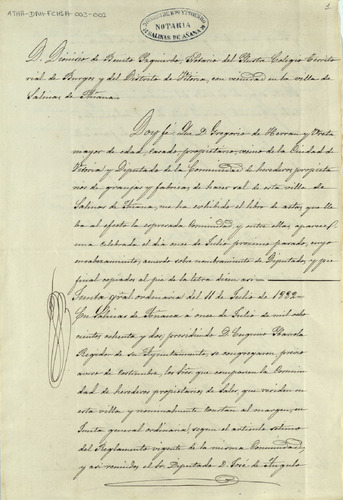 ATHA-DAH-FCHSA-003-002
1
NOTARIA
SALINAS DE AÑANA
D. Dionicio de Benito Paguerba, Notario del Ilustre Colegio Territo
rial de Burgos y del Distrito de Vitoria, con vecindad en la villa de
Salinas de Añana.
Doy fé: Que D. Gregorio de Herran y Ureta
mayor de edad, casado, propietario, vecino de la Ciudad de
Vitoria y Diputado de la Comunidad de herederos propieta
rios de granjas y fabricas de hacer sal de esta villa de
Salinas de Añana, me ha exhibido el libro de actas que lle
ba al efecto la espresada Comunidad, y entre ellas aparece
una celebrada el dia once de Julio proximo pasado, cuyo
encabezamiento, acuerdo sobre nombramiento de Diputados, y pie
final copiados al pie de la letra dicen asi
Junta gral ordinaria del 11 de Julio de 1882
En Salinas de Añana á once de Julio de mil ocho
cientos ochenta y dos, presidiendo D. Eugenio
Regidor de su Ayuntamiento, se congregaron, previo
aviso de costumbre, los Sres que componen la Comuni
dad de herederos propietarios de Sales, que residen en
esta villa y nominalmente constan al margen, en
Junta general ordinaria, segun el articulo setimo
del Reglamento vigente de la misma Comunidad,
y asi reunidos el Sr Diputado D. José de Angulo